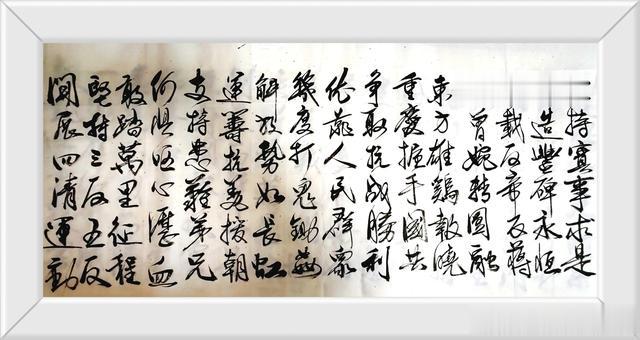 持實事求是
造豐碑永恒
載反帝反蔣
曾婉轉圓融
東方雄鷄報曉
重慶握手國共
爭取抗战勝利
依靠人民群衆
幾度打鬼鋤姦
解放勢如長虹
運籌抗美援朝
支持患難弟兄
何惧嘔心瀝血
敢踏萬里征程
堅持三反五反
開展四清運動